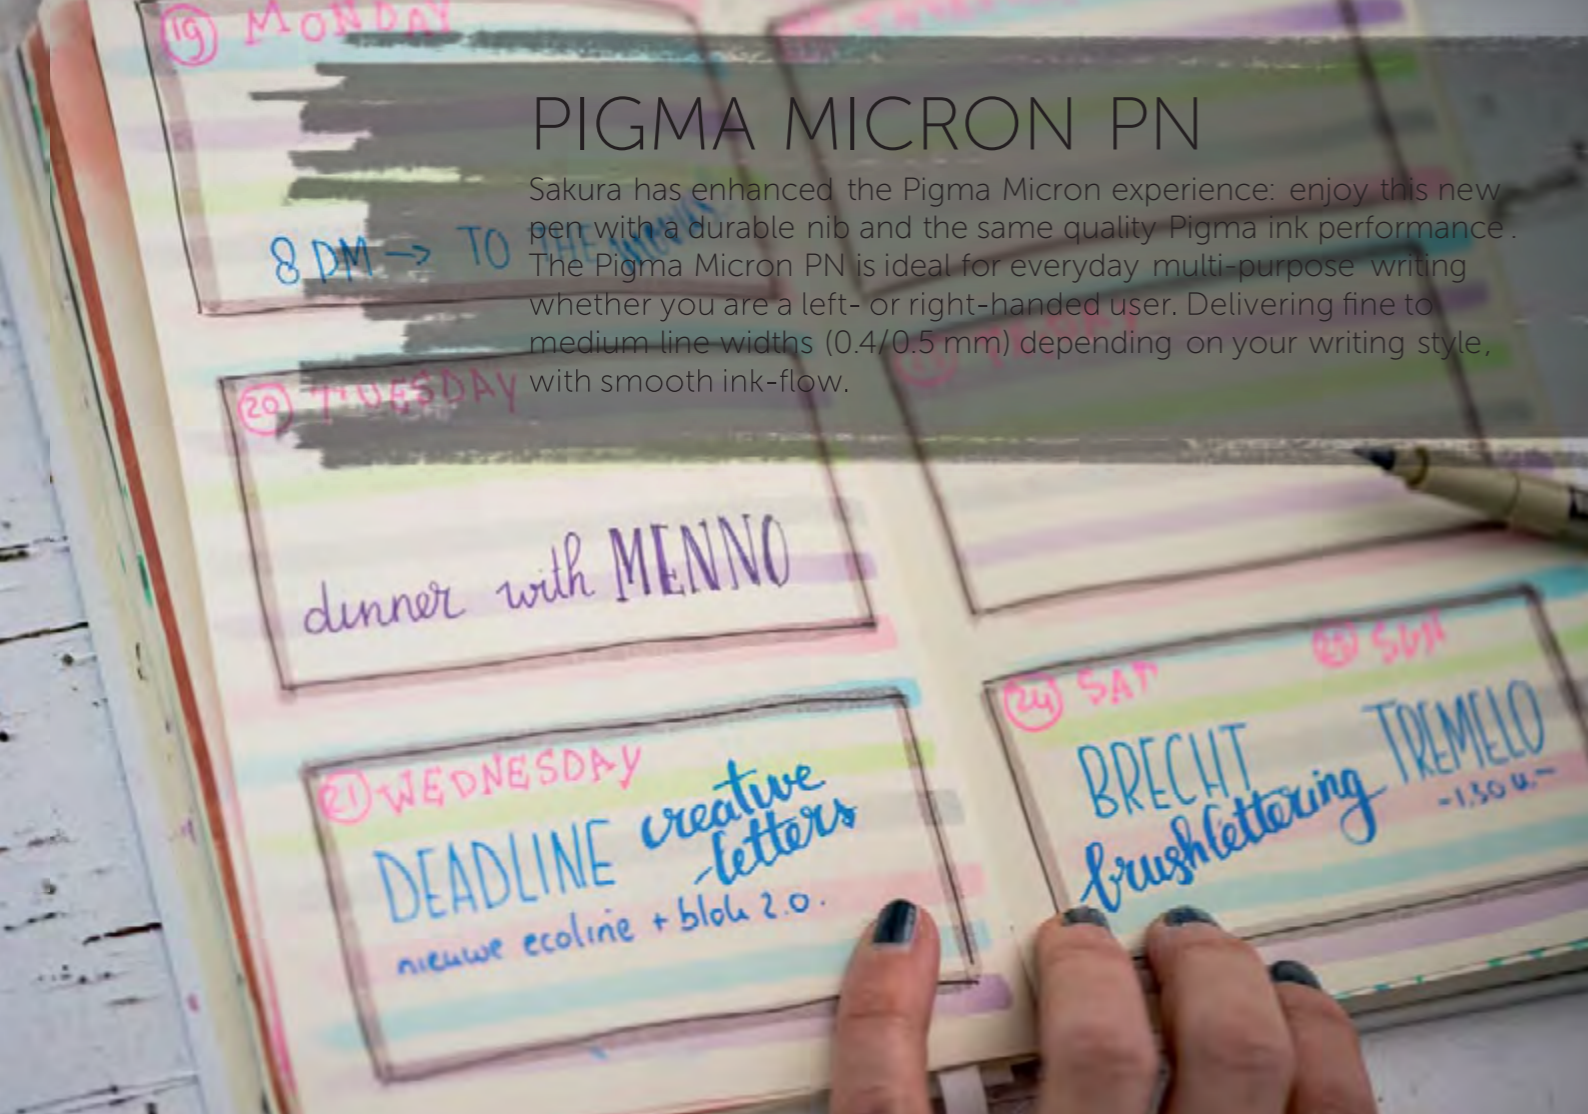 PIGMA MICRON PN
Sakura has enhanced the Pigma Micron experience: enjoy this new
pen with a durable nib and the same quality Pigma ink performance.
The Pigma Micron PN is ideal for everyday multi-purpose writing
whether you are a left- or right-handed user. Delivering fine to
medium line widths (0.4/0.5 mm) depending on your writing style,
with smooth ink-flow.
19 MONDAY
8 PM → TO THE movies
20 TUESDAY
dinner with MENNO
21 WEDNESDAY
DEADLINE creative
-letters
nieuwe ecoline + blok 2.0.
24 SAT
25 SUN
BRECHT
brushlettering
TREMELO
-1.30 u.-